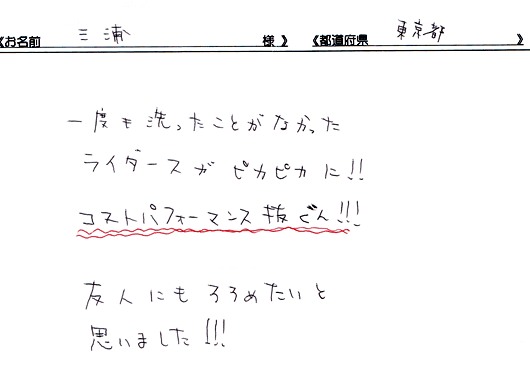 《お名前 三浦 様》 《都道府県 東京都 》
一度も洗ったことがなかった
ライダースがピカピカに!!
コストパフォーマンス抜ぐん!!!
友人にもろろめたいと
思いました!!!